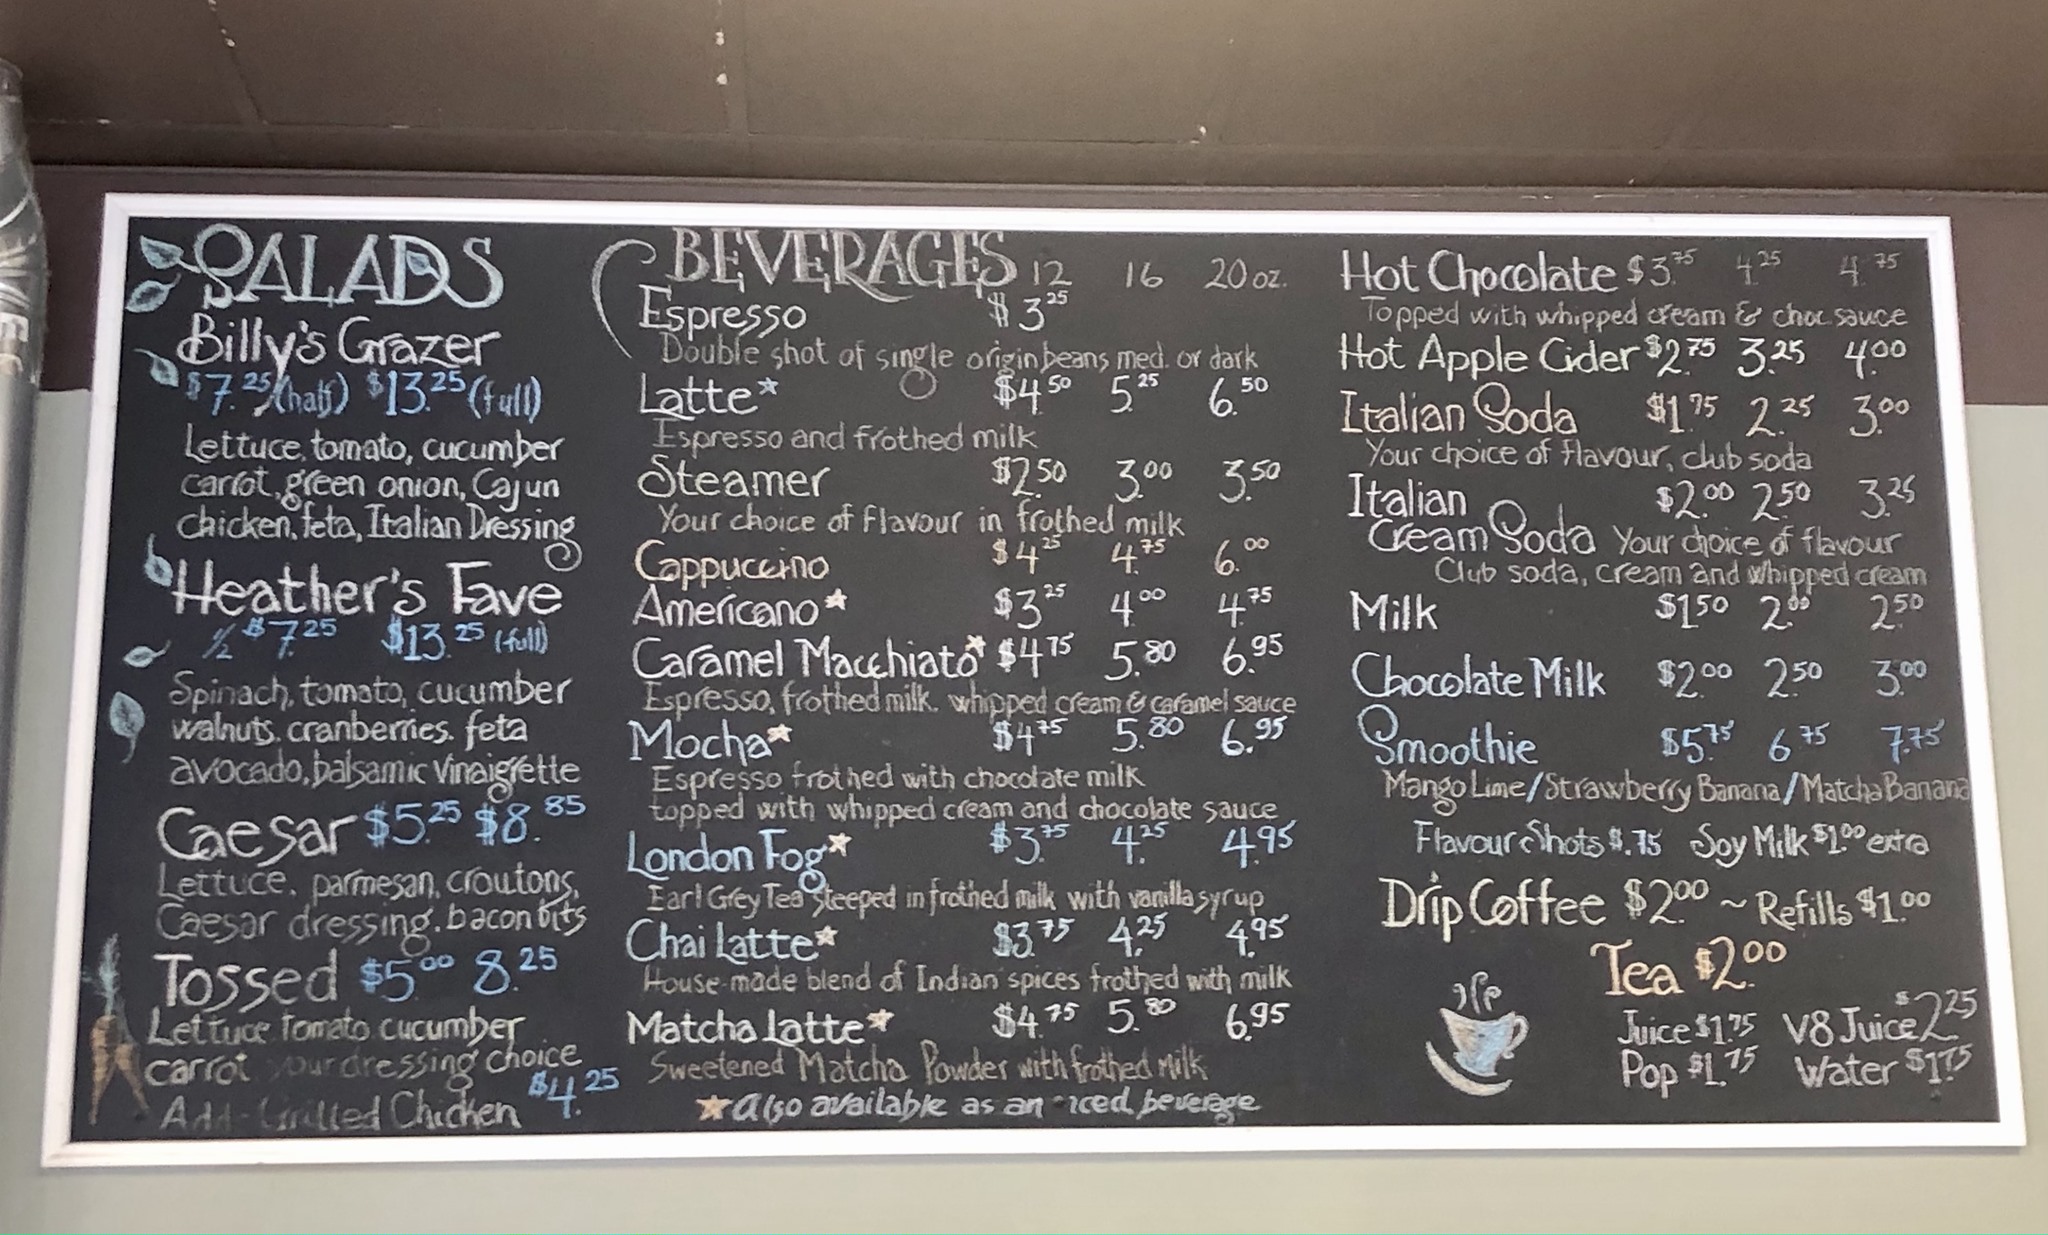 SALADS
Billy's Grazer
$7.25 (half) $13.25 (full)
Lettuce, tomato, cucumber
carrot, green onion, Cajun
chicken, feta, Italian Dressing
Heather's Fave
1/2 $7.25 $13.25 (full)
Spinach, tomato, cucumber
walnuts, cranberries, feta
avocado, balsamic Vinaigrette
Caesar $5.25 $8.85
Lettuce, parmesan, croutons,
Caesar dressing, bacon bits
Tossed $5.00 8.25
Lettuce Tomato cucumber
carrot your dressing choice
Add Grilled Chicken $4.25
BEVERAGES 12 16 20 oz.
Espresso $3.25
Double shot of single origin beans med. or dark
Latte* $4.50 5.25 6.50
Espresso and frothed milk
Steamer $2.50 3.00 3.50
Your choice of flavour in frothed milk
Cappuccino $4.25 4.75 6.00
Americano* $3.25 4.00 4.75
Caramel Macchiato* $4.75 5.80 6.95
Espresso, frothed milk, whipped cream & caramel sauce
Mocha* $4.75 5.80 6.95
Espresso frothed with chocolate milk
topped with whipped cream and chocolate sauce
London Fog* $3.75 4.25 4.95
Earl Grey Tea steeped in frothed milk with vanilla syrup
Chai Latte* $3.75 4.25 4.95
House-made blend of Indian spices frothed with milk
Matcha Latte* $4.75 5.80 6.95
Sweetened Matcha Powder with frothed milk
*also available as an iced beverage
Hot Chocolate $3.75 4.25 4.75
Topped with whipped cream & choc sauce
Hot Apple Cider $2.75 3.25 4.00
Italian Soda $1.75 2.25 3.00
Your choice of flavour, club soda
Italian $2.00 2.50 3.25
Cream Soda Your choice of flavour
Club soda, cream and whipped cream
Milk $1.50 2.00 2.50
Chocolate Milk $2.00 2.50 3.00
Smoothie $5.75 6.75 7.75
Mango Lime/Strawberry Banana/Matcha Banana
Flavour Shots $.75 Soy Milk $1.00 extra
Drip Coffee $2.00 ~ Refills $1.00
Tea $2.00
Juice $1.75 V8 Juice $2.25
Pop $1.75 Water $1.75